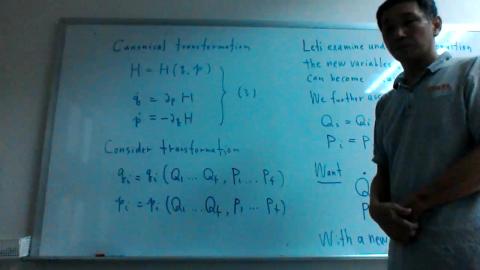 Canonical transformation
H = H(q, p)
q̇ = ∂ₚ H
ṗ = -∂qH
} (1)
Consider transformation
qᵢ = qᵢ (Q₁ ... Q_f, P₁ ... P_f)
pᵢ = pᵢ (Q₁ ... Q_f, P₁ ... P_f)
Lets examine und
the new variables
can become
We further
Qᵢ = Qᵢ
Pᵢ = P
Want
Q̇
With a new